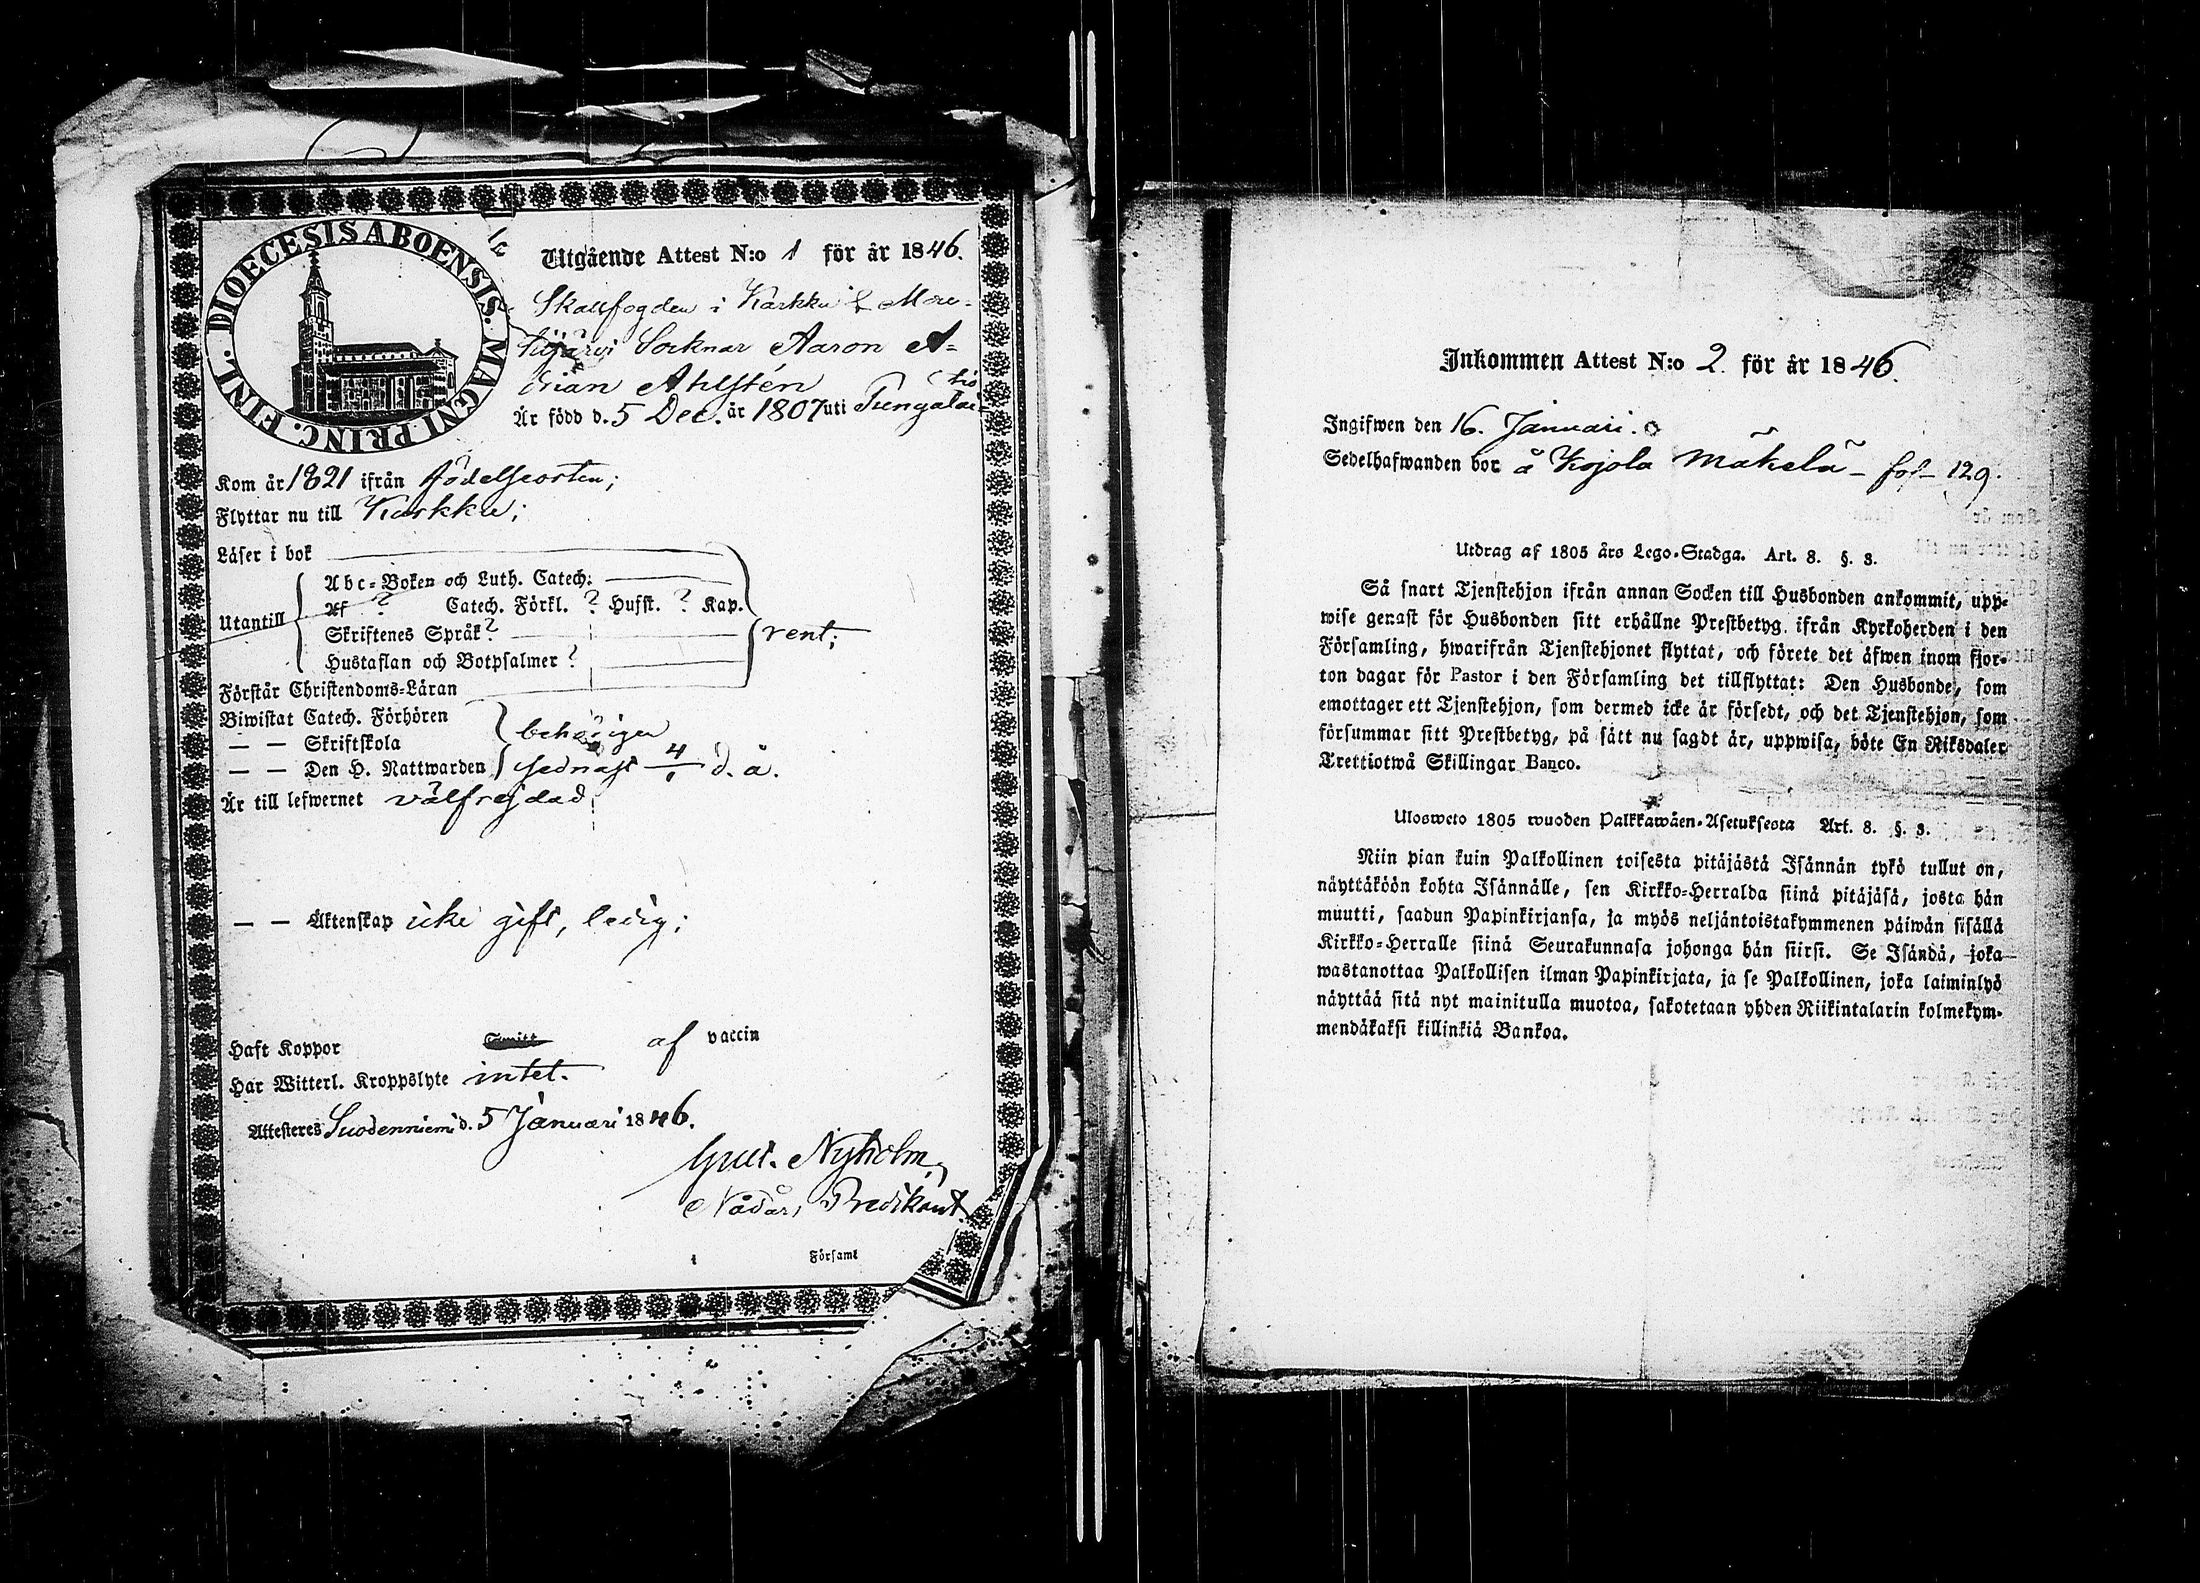 DIOECESIS ABOENSIS. MAGNI PRINC. FINL.
Utgående Attest N:o 1 för år 1846.
Skallfogden i Karkku & Mou-
hijärvi Socknar Aaron A-
drian Ahlstén
Är född d. 5 Dec. år 1807 uti
Kom år 1821 ifrån födelseorten;
Flyttar nu till Karkku;
Läser i bok
Abc-Boken och Luth. Catech.
Utantill Af ? Catech. Förkl. ? Hufst. ? Kap.
Skriftenes Språk ?
rent;
Hustaflan och Botpsalmer ?
Förstår Christendoms-Läran
Biwistat Catech. Förhören
— — Skriftskola behörigen
— — Den H. Nattwarden sednast 4/1 d. å.
Är till lefwernet välfrejdad
— — Äktenskap icke gift, ledig;
Haft Koppor af vaccin
Har Witterl. Kroppslyte intet.
Attesteres Suodenniemi d. 5 Januari 1846.
Gust. Nyholm,
Nådår, Predikant
Församl
Inkommen Attest N:o 2. för år 1846.
Ingifwen den 16. Januari.
Sedelhafwanden bor å Kojola Mäkelä - fol- 129.
Utdrag af 1805 års Lego-Stadga. Art. 8. §. 3.
Så snart Tjenstehjon ifrån annan Socken till Husbonden ankommit, upp-
wise genast för Husbonden sitt erhållne Prestbetyg ifrån Kyrkoherden i den
Församling, hwarifrån Tjenstehjonet flyttat, och förete det äfwen inom fjor-
ton dagar för Pastor i den Församling det tillflyttat: Den Husbonde, som
emottager ett Tjenstehjon, som dermed icke är försedt, och det Tjenstehjon, som
försummar sitt Prestbetyg, på sätt nu sagdt är, uppwisa, böte En Riksdaler
Trettiotwå Skillingar Banco.
Ulosweto 1805 wuoden Palkkawäen-Asetuksesta Art. 8. §. 3.
Niin pian kuin Palkollinen toisesta pitäjästä Isännän tykö tullut on,
näyttäköön kohta Isännälle, sen Kirkko-Herralda siinä pitäjäsä, josta hän
muutti, saadun Papinkirjansa, ja myös neljäntoistakymmenen päiwän sisällä
Kirkko-Herralle siinä Seurakunnasa johonga hän siirsi. Se Isändä, joka
wastanottaa Palkollisen ilman Papinkirjata, ja se Palkollinen, joka laiminlyö
näyttää sitä nyt mainitulla muotoa, sakotetaan yhden Riikintalarin kolmekym-
mendäkaksi killinkiä Bankoa.